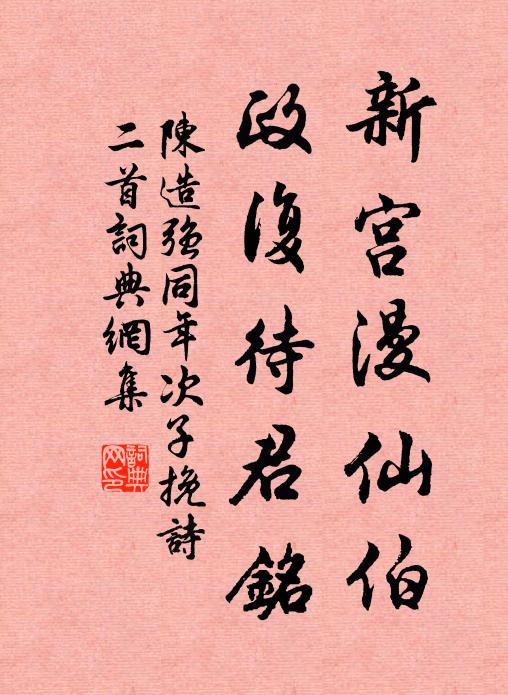 新宫漫仙伯
政復待君銘
陳造強同年次子挽詩
二首詞典網集
詞典网印